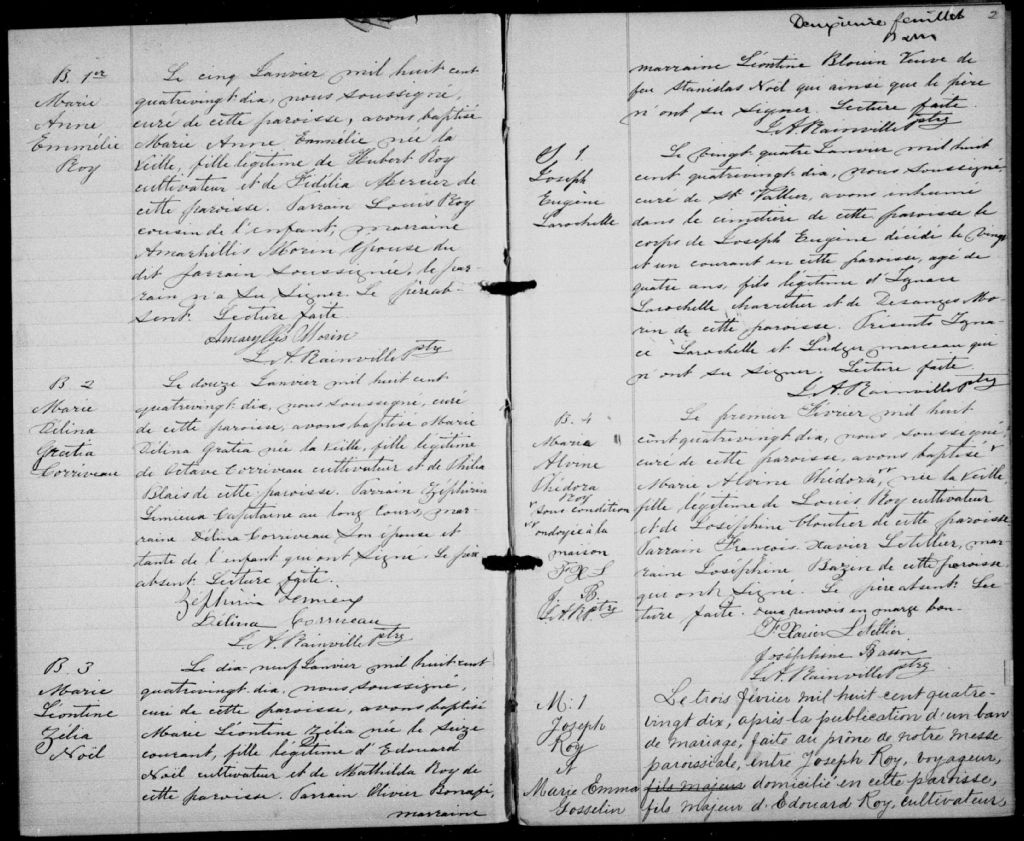 B. 1er
Marie
Anne
Emmélie
Roy
Le cinq Janvier mil huit cent
quatrevingt-dix, nous soussigné,
curé de cette paroisse, avons baptisé
Marie Anne Emmélie née la
veille, fille légitime de Hubert Roy
cultivateur et de Fidélia Mercier de
cette paroisse. Parrain Louis Roy
cousin de l'enfant, marraine
Amarhillis Morin épouse du
dit parrain soussignée, le par-
rain n'a su signer. Le père ab-
sent. Lecture faite
Amaryllis Morin
L.A. Rainville ptre
B 2
Marie
Délina
Gratia
Corriveau
Le douze Janvier mil huit cent
quatrevingt-dix, nous soussigné, curé
de cette paroisse, avons baptisé Marie
Délina Gratia née la veille, fille légitime
de Octave Corriveau cultivateur et de Philia
Blais de cette paroisse. Parrain Zéphirin
Lemieux Capitaine au long cours, mar-
raine Délina Corriveau son épouse et
tante de l'enfant qui ont signé. Le père
absent. Lecture faite.
Zéphirin Lemieux
Délina Corriveau
L.A. Rainville ptre
B 3
Marie
Léontine
Zélia
Noël
Le dix neuf Janvier mil huit cent
quatrevingt-dix, nous soussigné,
curé de cette paroisse, avons baptisé
Marie Léontine Zélia née le seize
courant, fille légitime d'Edouard
Noël cultivateur et de Mathilda Roy de
cette paroisse. Parrain Olivier
marraine
Deuxième feuillet
2
marraine Léontine Blouin Veuve de
feu Stanislas Noël qui ainsi que le père
n'ont su signer. Lecture faite.
L.A. Rainville ptre
S 1.
Joseph
Eugène
Larochelle
Le vingt quatre Janvier mil huit
cent quatrevingt-dix, nous soussigné
curé de St Vallier, avons inhumé
dans le cimetière de cette paroisse le
corps de Joseph Eugène décédé le vingt
et un courant en cette paroisse, agé de
quatre ans, fils légitime d'Ignace
Larochelle charretier et de Desanges Mo-
rin de cette paroisse. Présents Igna-
ce Larochelle et Ludger marceau qui
n'ont su signer. Lecture faite
L.A. Rainville ptre
B. 4
Maria
Alvine
Phédora
Roy
sous condition
ondoyée à la
maison
F X L
J. B.
L.A.R. ptre
Le premier Février mil huit
cent quatrevingt-dix, nous soussigné
curé de cette paroisse, avons baptisé
Marie Alvine Phédora, née la veille
fille légitime de Louis Roy cultivateur
et de Joséphine Cloutier de cette paroisse.
Parrain François-Xavier Letellier, mar-
raine Joséphine Bazin de cette paroisse
qui ont signé. Le père absent. Lec-
ture faite. deux renvois en marge bon-
F Xavier Letellier
Joséphine Basin
L.A. Rainville ptre
M. 1
Joseph
Roy
et
Marie Emma
Gosselin
Le trois février mil huit cent quatre-
vingt dix, après la publication d'un ban
de mariage, faite au prône de notre messe
paroissiale, entre Joseph Roy, voyageur,
fils majeur domicilié en cette paroisse,
fils majeur d'Edouard Roy, cultivateur,